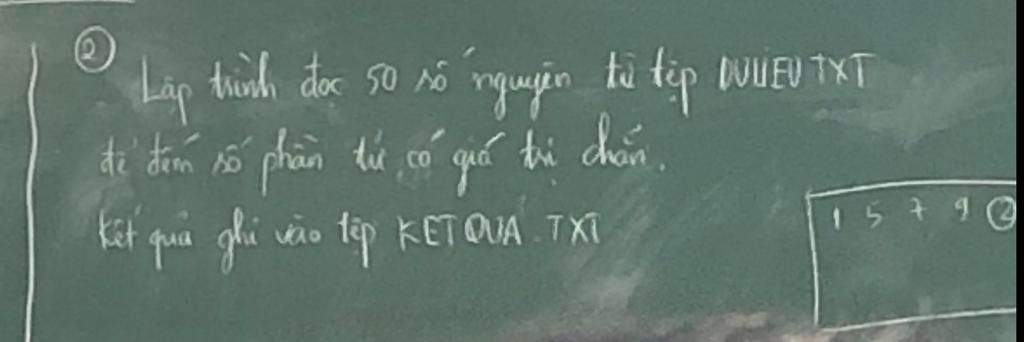 ②
Lập trình đọc 50 số nguyên từ tệp DULIEU TXT
để đếm số phần tử có giá trị chẵn.
Kết quả ghi vào tệp KETQUA.TXT
1 5 7 9 ②